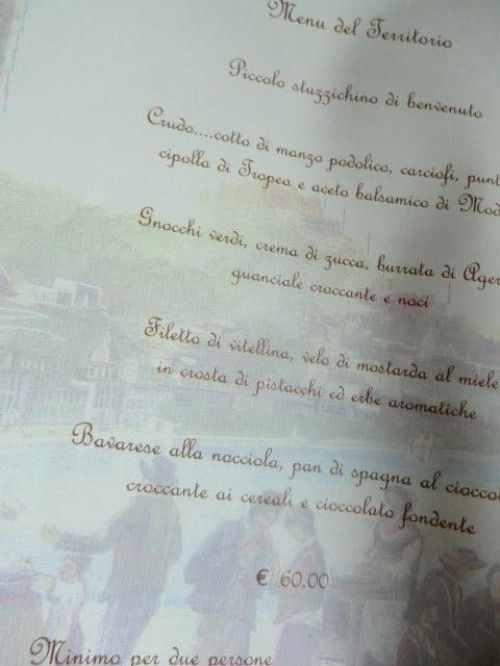 Menu del Territorio
Piccolo stuzzichino di benvenuto
Crudo....cotto di manzo podolico, carciofi, punt
cipolla di Tropea e aceto balsamico di Mod
Gnocchi verdi, crema di zucca, burrata di Ager
guanciale croccante e noci
Filetto di vitellina, velo di mostarda al miele
in crosta di pistacchi ed erbe aromatiche
Bavarese alla nocciola, pan di spagna al cioccol
croccante ai cereali e cioccolato fondente
€ 60.00
Minimo per due persone